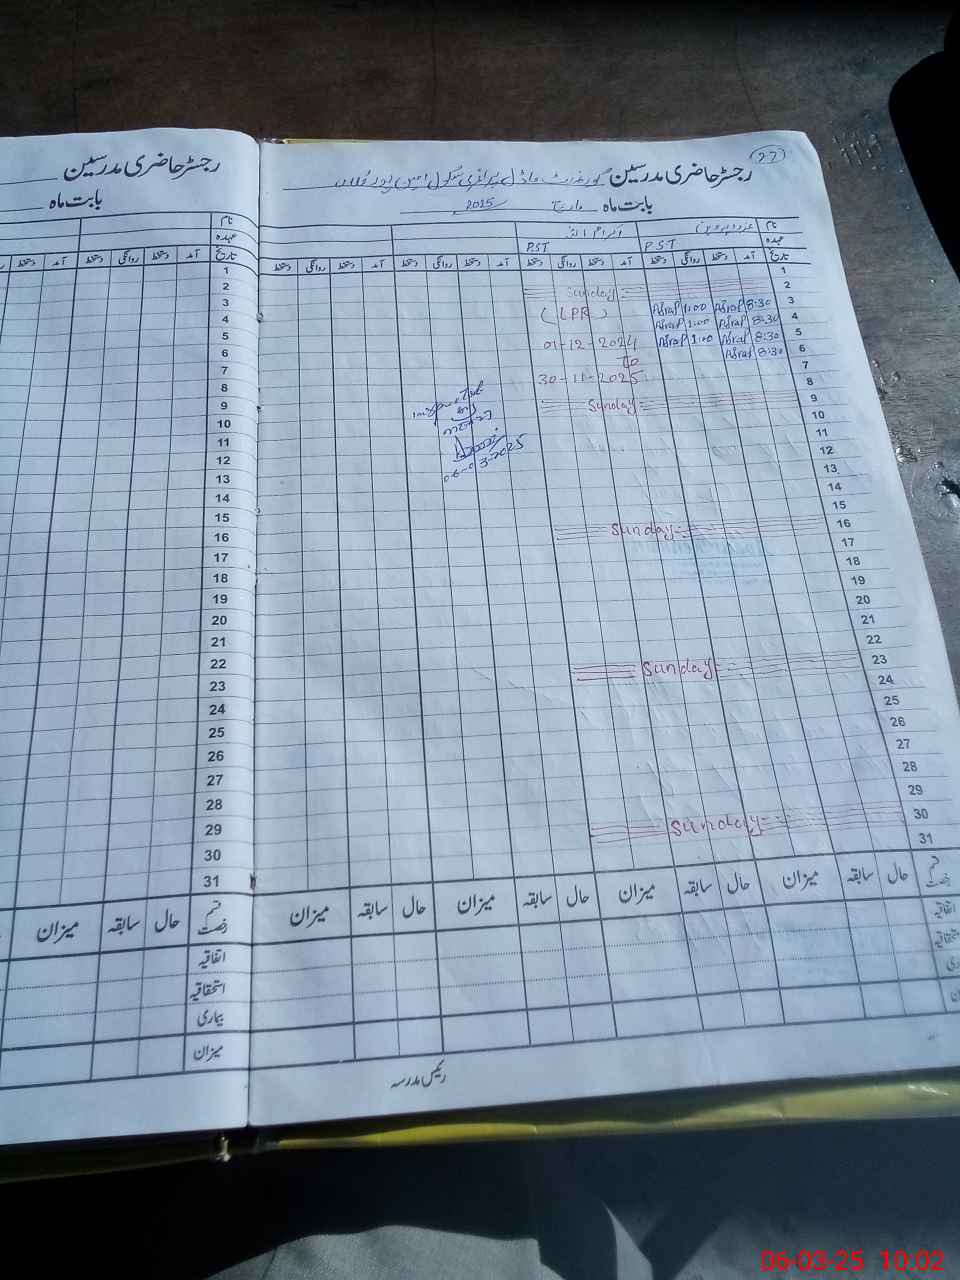 27
رجسٹر حاضری مدرسین گورنمنٹ ماڈل پرائمری سکول امین پور
بابت ماہ مارچ 2025
نام
عہدہ P.S.T P.S.T
تاریخ آمد دستخط روانگی دستخط آمد دستخط روانگی دستخط آمد دستخط روانگی دستخط آمد دستخط روانگی دستخط
1
2 Sunday
3 8:30 1:00 (LPR)
4 8:30 1:00
5 8:30 1:00 01-12-2024
6 8:30 To
7 30-11-2025
8
9 Sunday
10
11
12
13
14
15
16 Sunday
17
18
19
20
21
22
23 Sunday
24
25
26
27
28
29
30 Sunday
31
06-03-2025
قسم رخصت حال سابقہ میزان حال سابقہ میزان حال سابقہ میزان حال سابقہ میزان
اتفاقیہ
رئیس مدرسہ
رجسٹر حاضری مدرسین
بابت ماہ
نام
عہدہ
تاریخ آمد دستخط روانگی دستخط آمد
1
2
3
4
5
6
7
8
9
10
11
12
13
14
15
16
17
18
19
20
21
22
23
24
25
26
27
28
29
30
31
قسم رخصت حال سابقہ میزان
اتفاقیہ
استحقاقیہ
بیماری
میزان
06-03-25 10:02